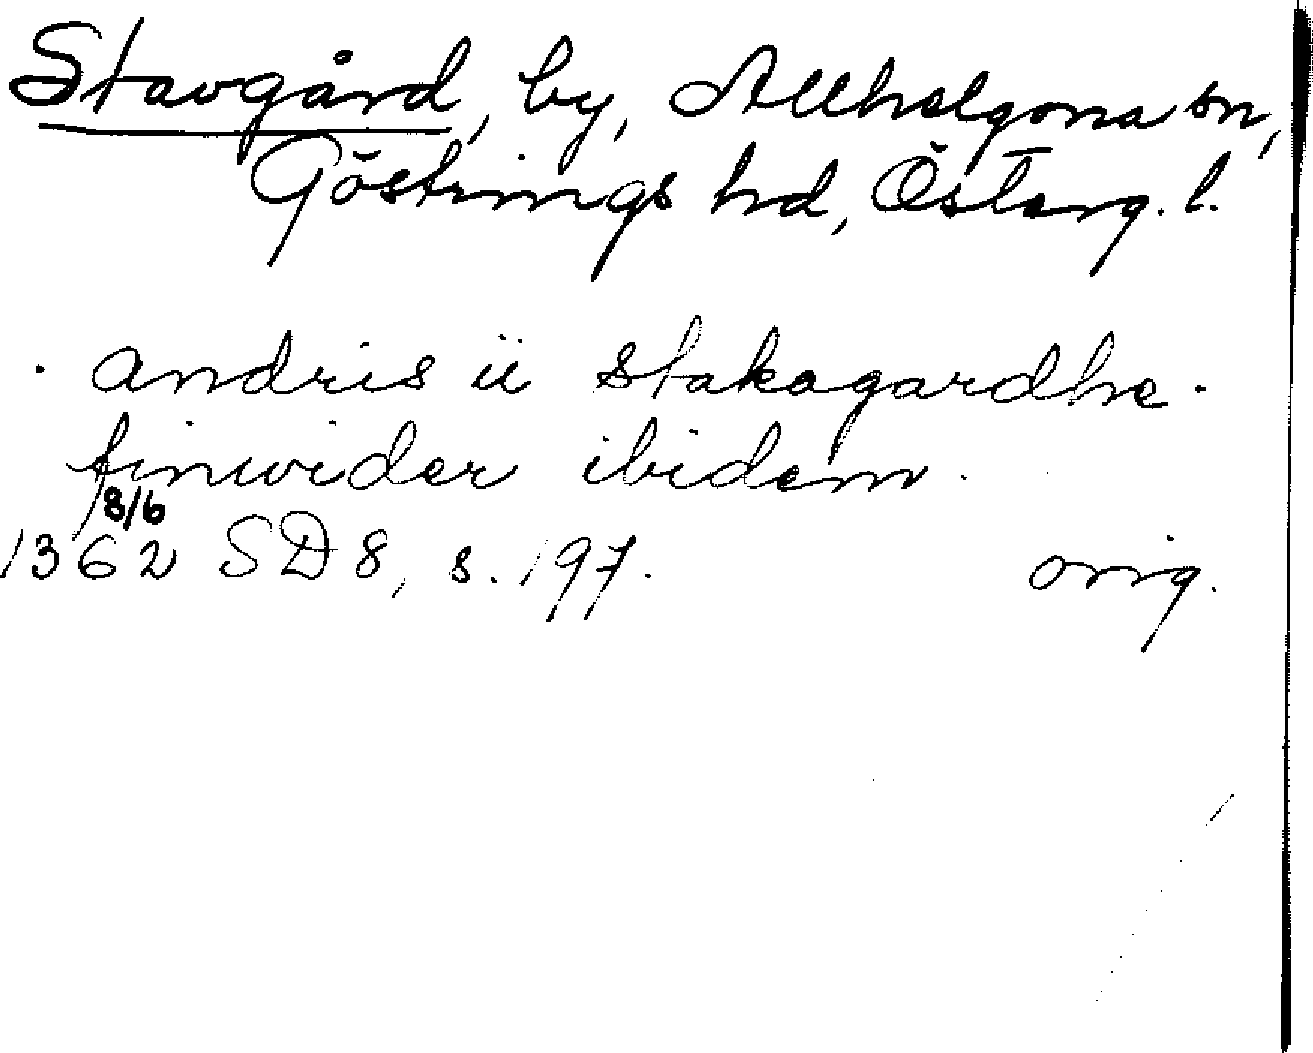 Stavgård, by, Allhelgona sn,
Göstrings hd, Österg. l.
. andris ii stakagardhe.
finwider ibidem.
8/6
1362 SD 8, s. 197. orig.